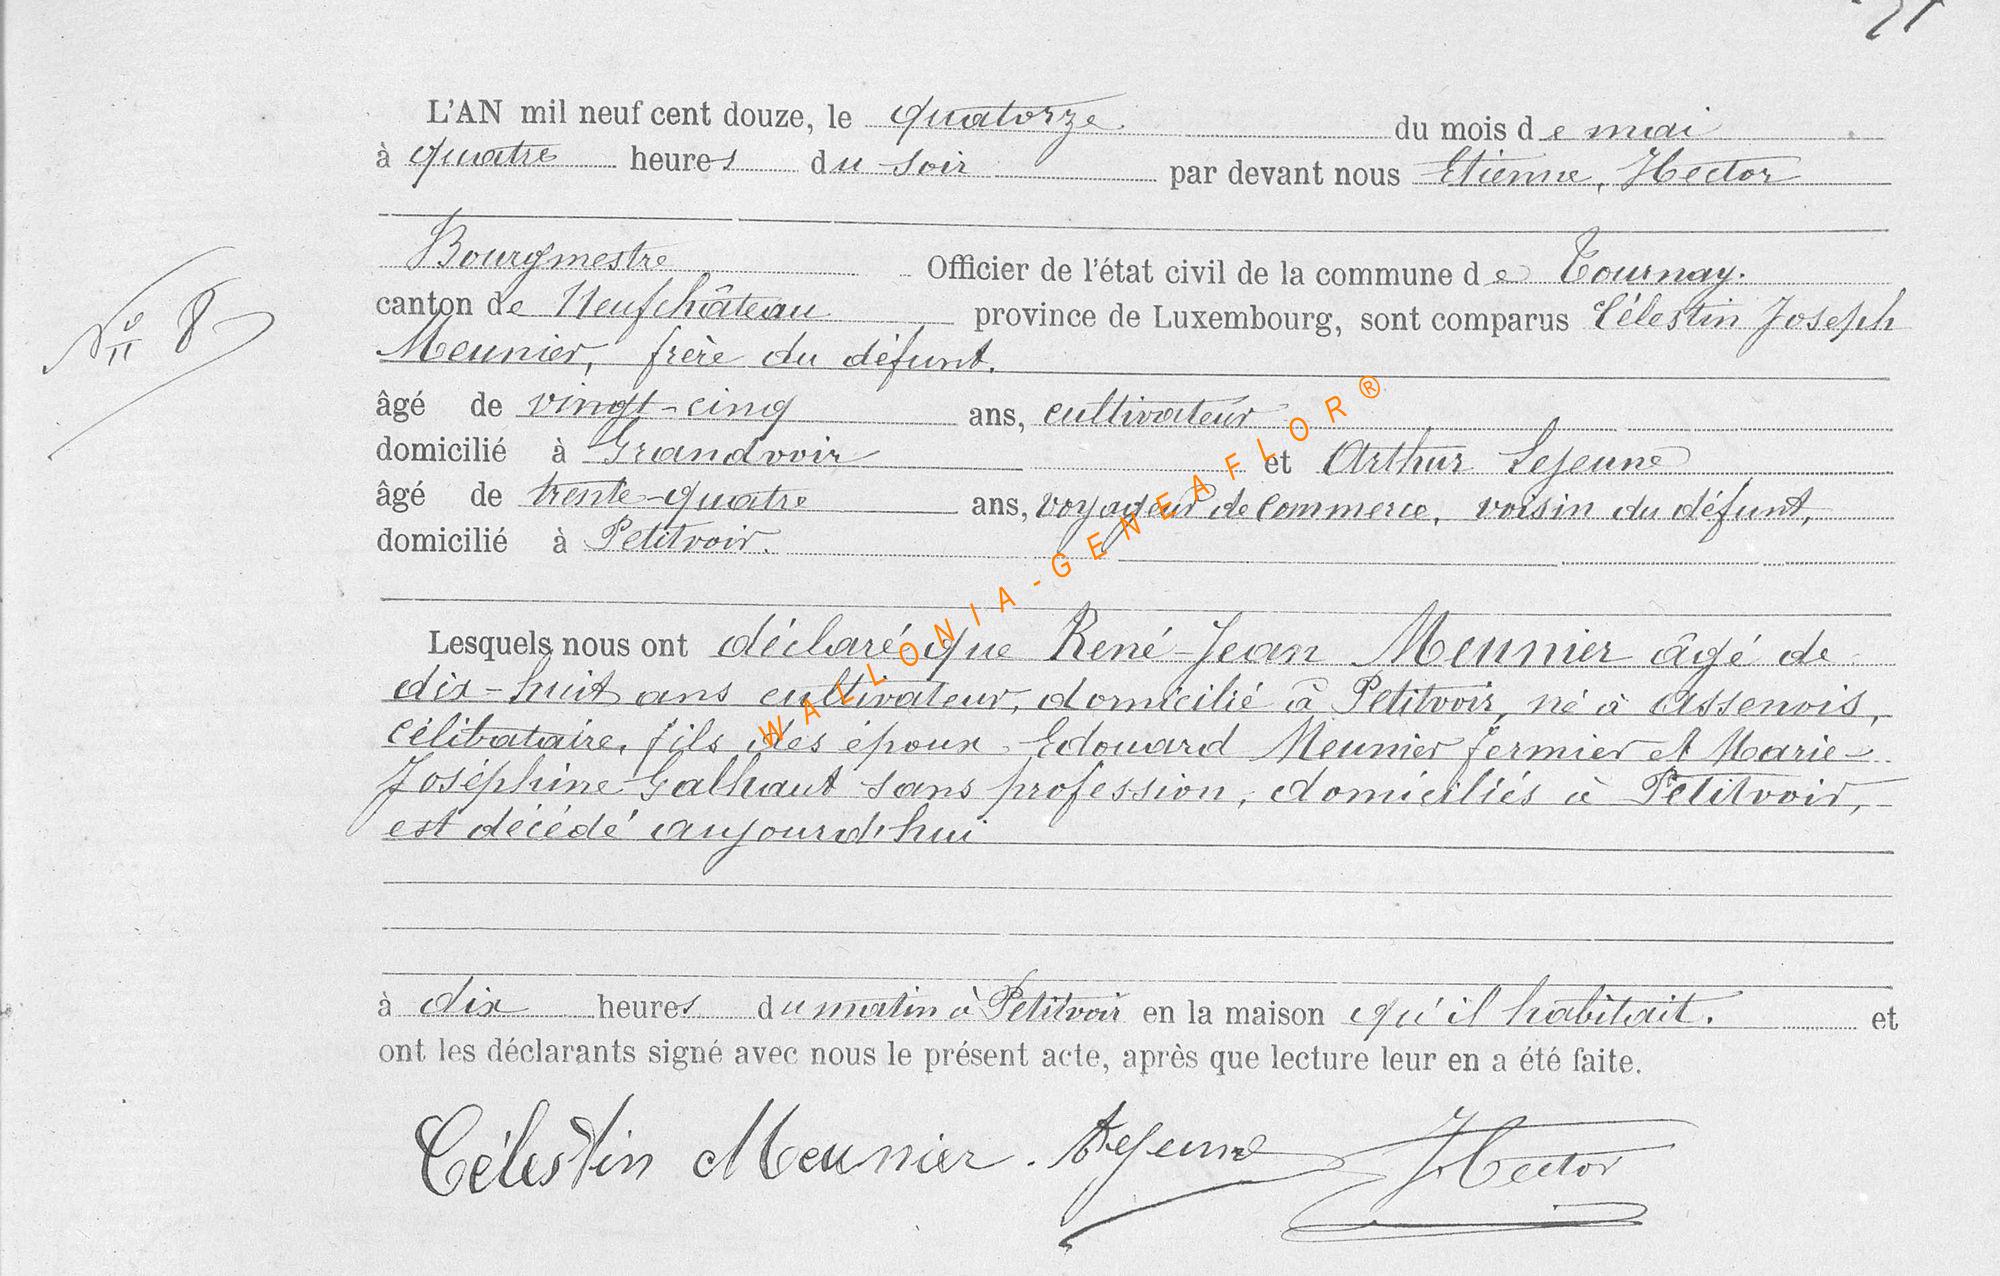 L'AN mil neuf cent douze, le quatorze du mois de mai
à quatre heures du soir par devant nous Etienne, Hector
Bourgmestre Officier de l'état civil de la commune de Tournay.
canton de Neufchâteau province de Luxembourg, sont comparus Célestin Joseph
Nº 8
Meunier, frère du défunt.
âgé de vingt-cinq ans, cultivateur
domicilié à Grandvoir et Arthur Lejeune
âgé de trente-quatre ans, voyageur de commerce, voisin du défunt,
domicilié à Petitvoir.
Lesquels nous ont déclaré que René-Jean Meunier âgé de
dix-huit ans cultivateur, domicilié à Petitvoir, né à Assenois,
célibataire, fils des époux Edouard Meunier fermier et Marie-
Joséphine Galhaut sans profession, domiciliés à Petitvoir,
est décédé aujourd'hui
à dix heures du matin à Petitvoir en la maison qu'il habitait. et
ont les déclarants signé avec nous le présent acte, après que lecture leur en a été faite.
Célestin Meunier. ALejeune Hector
WALLONIA-GENEAFLOR®